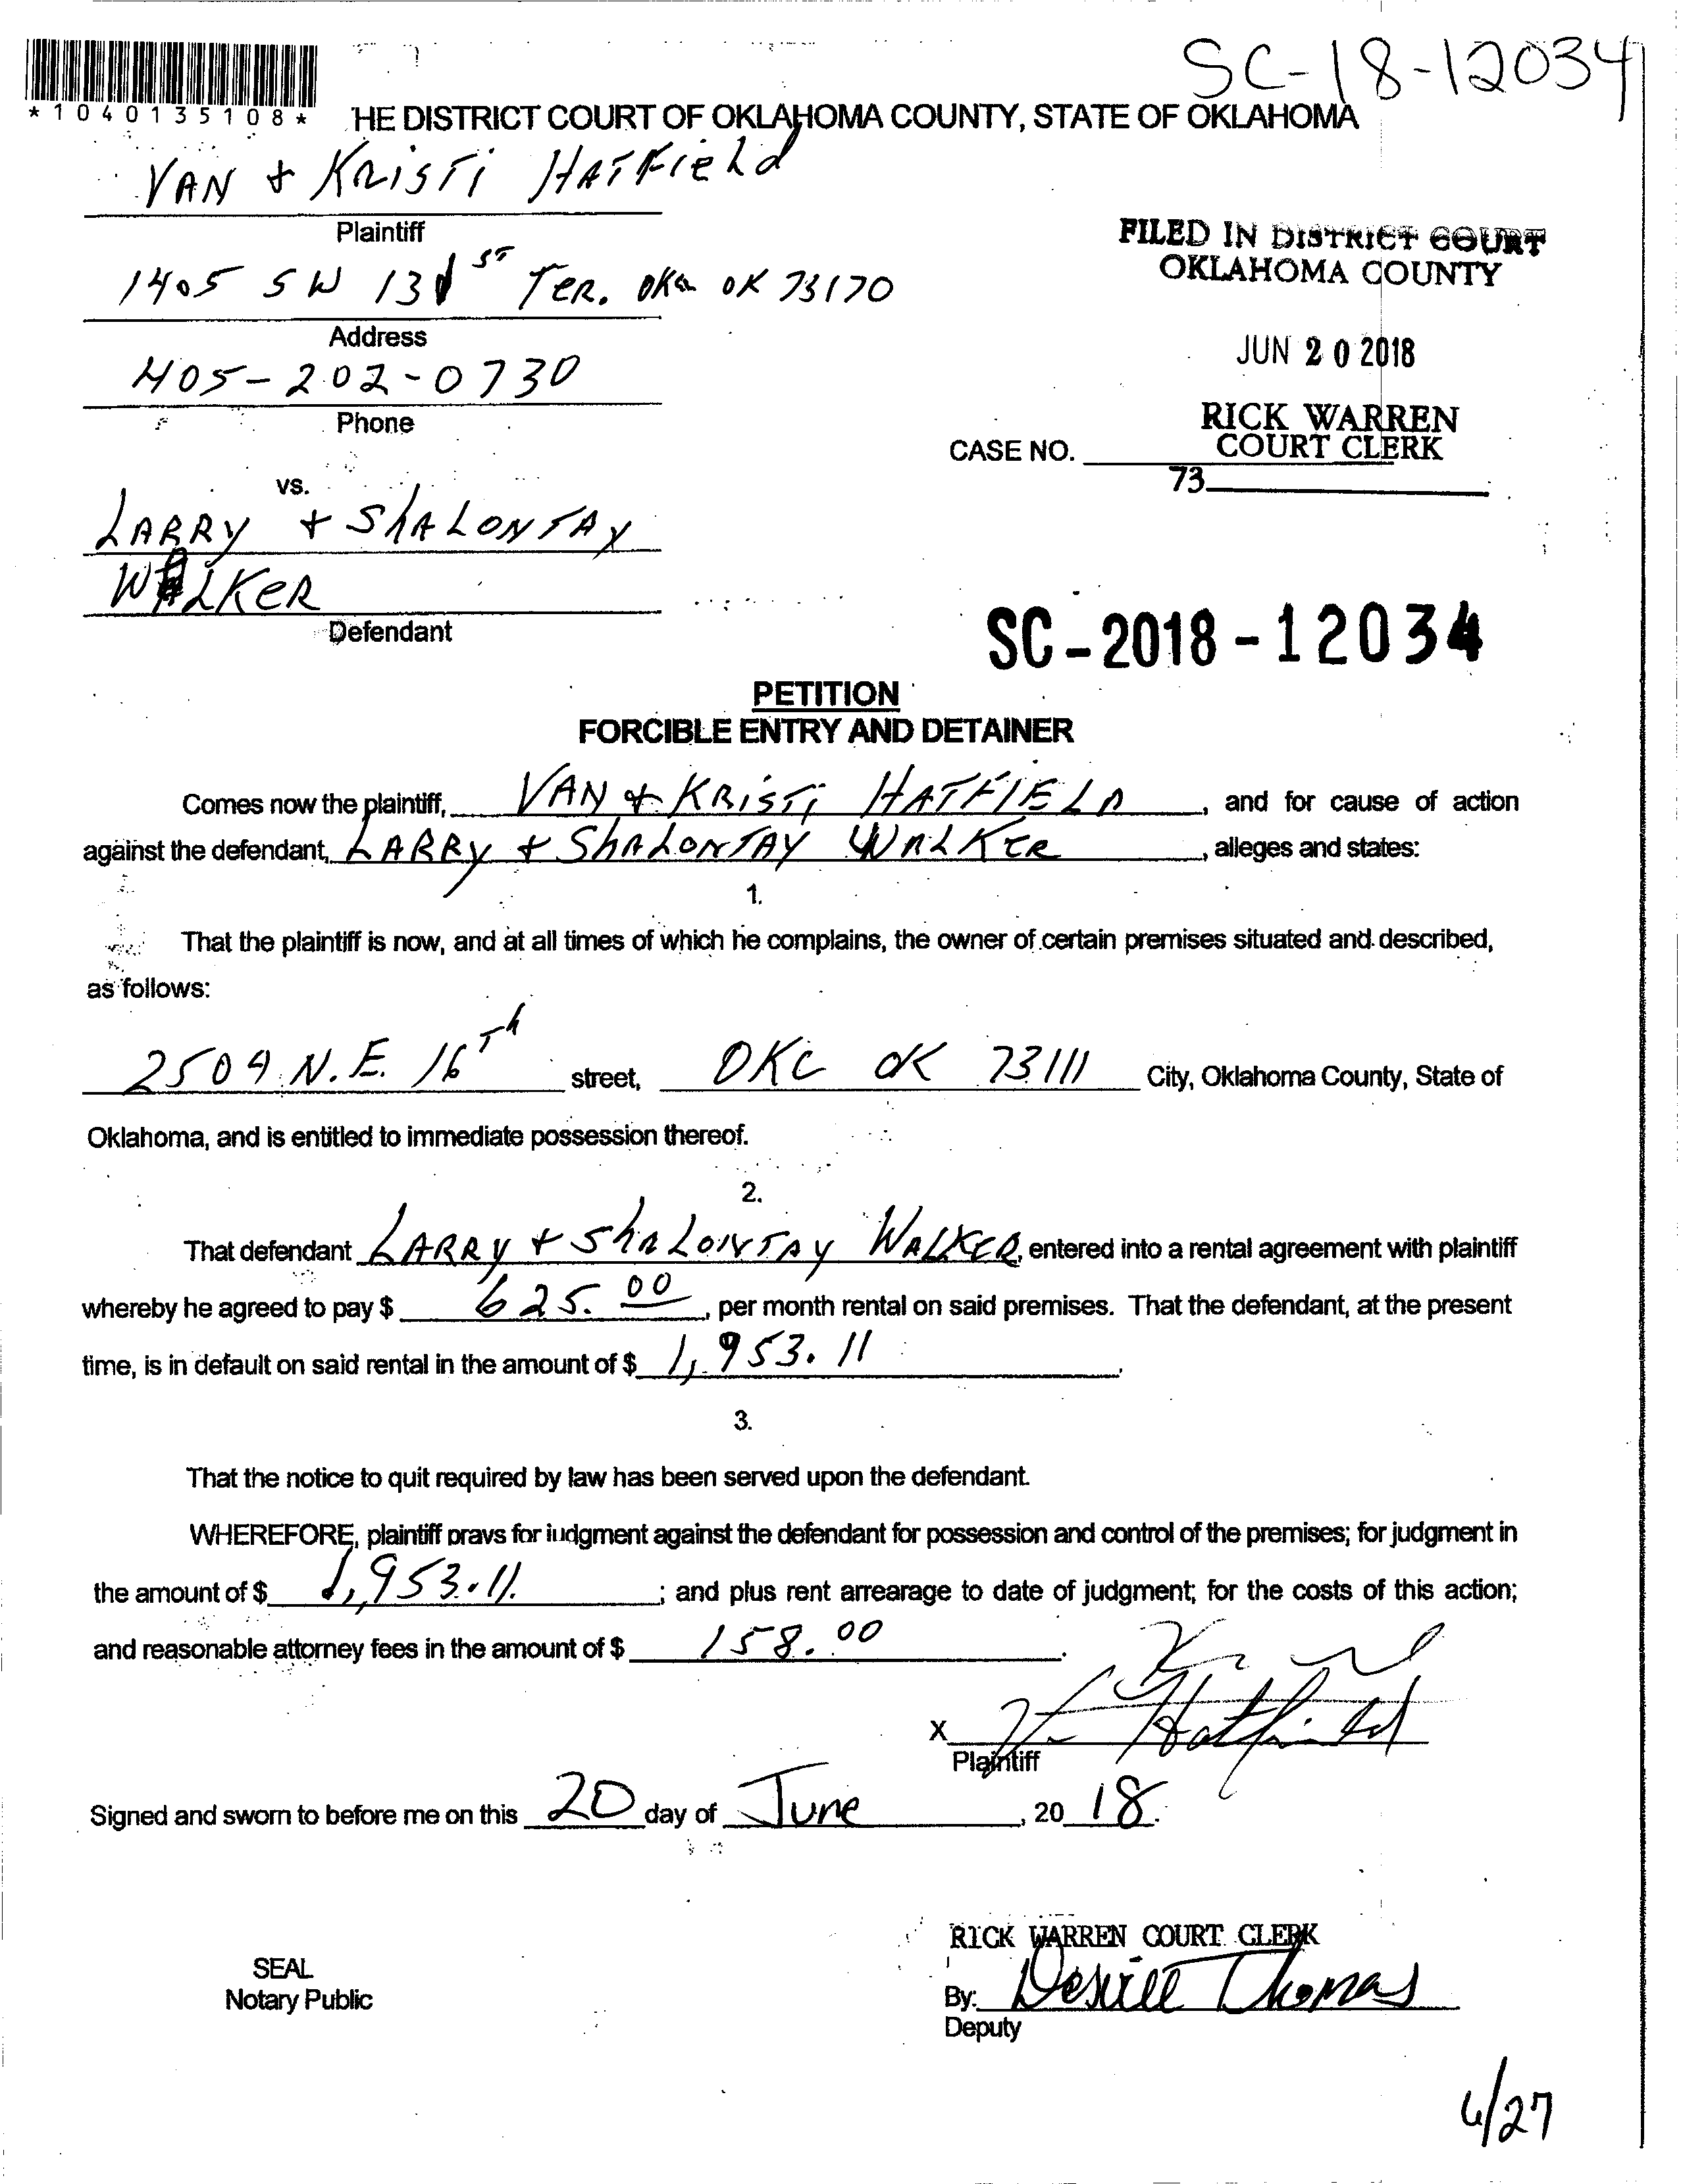 SC-18-12034
*1040135108*
HE DISTRICT COURT OF OKLAHOMA COUNTY, STATE OF OKLAHOMA
VAN + KRISTI HATFIELD
Plaintiff
1405 SW 131st TER. OKC OK 73170
Address
405-202-0730
Phone
FILED IN DISTRICT COURT
OKLAHOMA COUNTY
JUN 20 2018
RICK WARREN
COURT CLERK
CASE NO.
73
vs.
LARRY + SHALONTAY
WALKER
Defendant
SC-2018-12034
PETITION
FORCIBLE ENTRY AND DETAINER
Comes now the plaintiff, VAN + KRISTI HATFIELD, and for cause of action
against the defendant, LARRY + SHALONTAY WALKER, alleges and states:
1.
That the plaintiff is now, and at all times of which he complains, the owner of certain premises situated and described,
as follows:
2509 N.E. 16Th street, OKC OK 73111 City, Oklahoma County, State of
Oklahoma, and is entitled to immediate possession thereof.
2.
That defendant LARRY + SHALONTAY WALKER, entered into a rental agreement with plaintiff
whereby he agreed to pay $ 625.00, per month rental on said premises. That the defendant, at the present
time, is in default on said rental in the amount of $ 1,953.11.
3.
That the notice to quit required by law has been served upon the defendant.
WHEREFORE, plaintiff prays for judgment against the defendant for possession and control of the premises; for judgment in
the amount of $ 1,953.11. ; and plus rent arrearage to date of judgment; for the costs of this action;
and reasonable attorney fees in the amount of $ 158.00.
X Hatfield
Plaintiff
Signed and sworn to before me on this 20 day of June, 20 18.
RICK WARREN COURT CLERK
SEAL
Notary Public
By: Thomas
Deputy
6/27